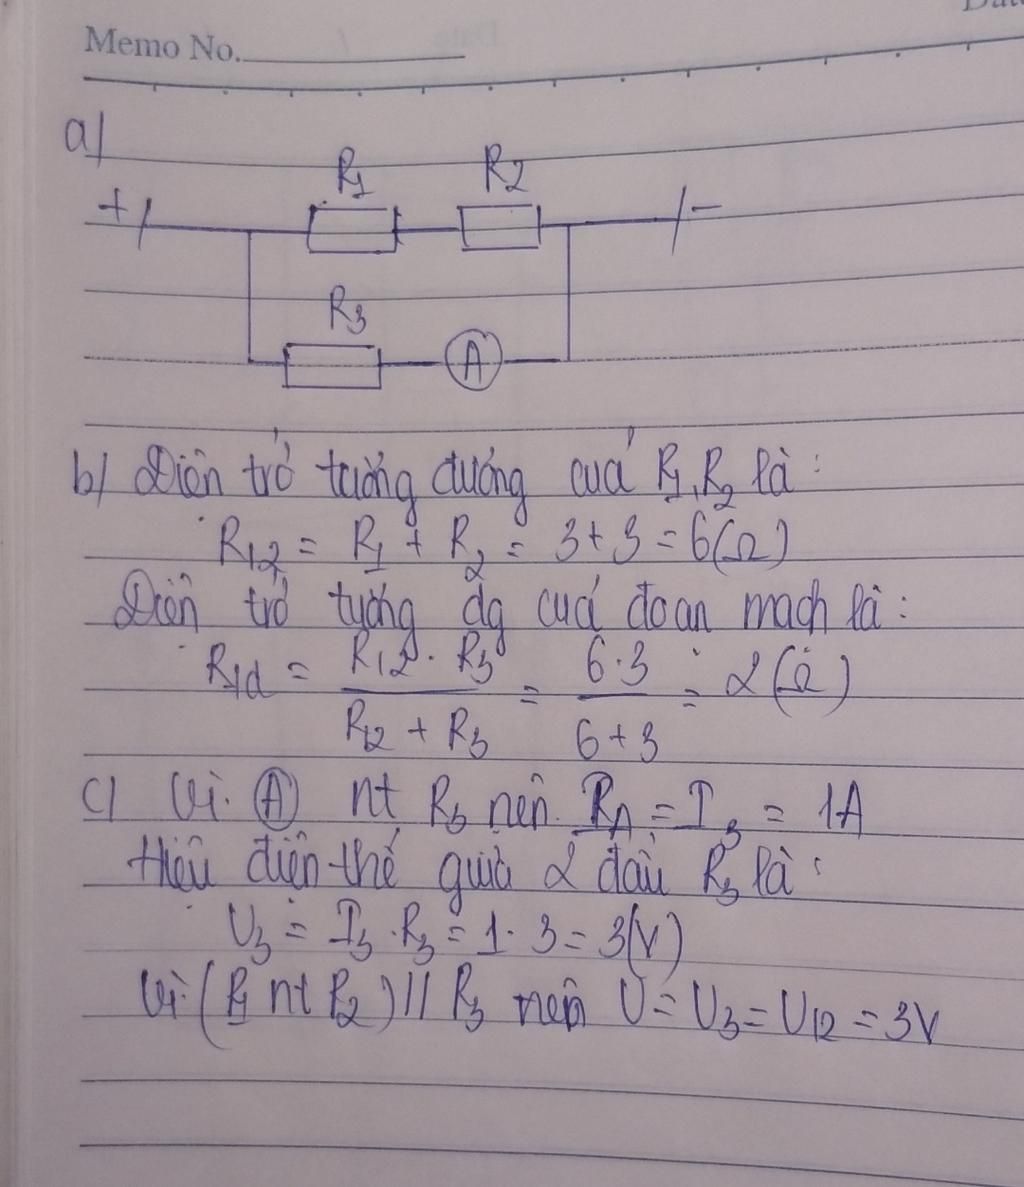 Memo No.
a)
R1 R2
+ -
R3
A
b) Điện trở tương đương của R1, R2 là:
R12 = R1 + R2 = 3 + 3 = 6 (Ω)
Điện trở tương đg của đoạn mạch là:
Rtđ = R12 . R3 / R12 + R3 = 6 . 3 / 6 + 3 = 2 (Ω)
c) Vì (A) nt R3 nên RA = I3 = 1A
Hiệu điện thế giữa 2 đầu R3 là:
U3 = I3 . R3 = 1 . 3 = 3 (V)
Vì (R1 nt R2) // R3 nên U = U3 = U12 = 3V